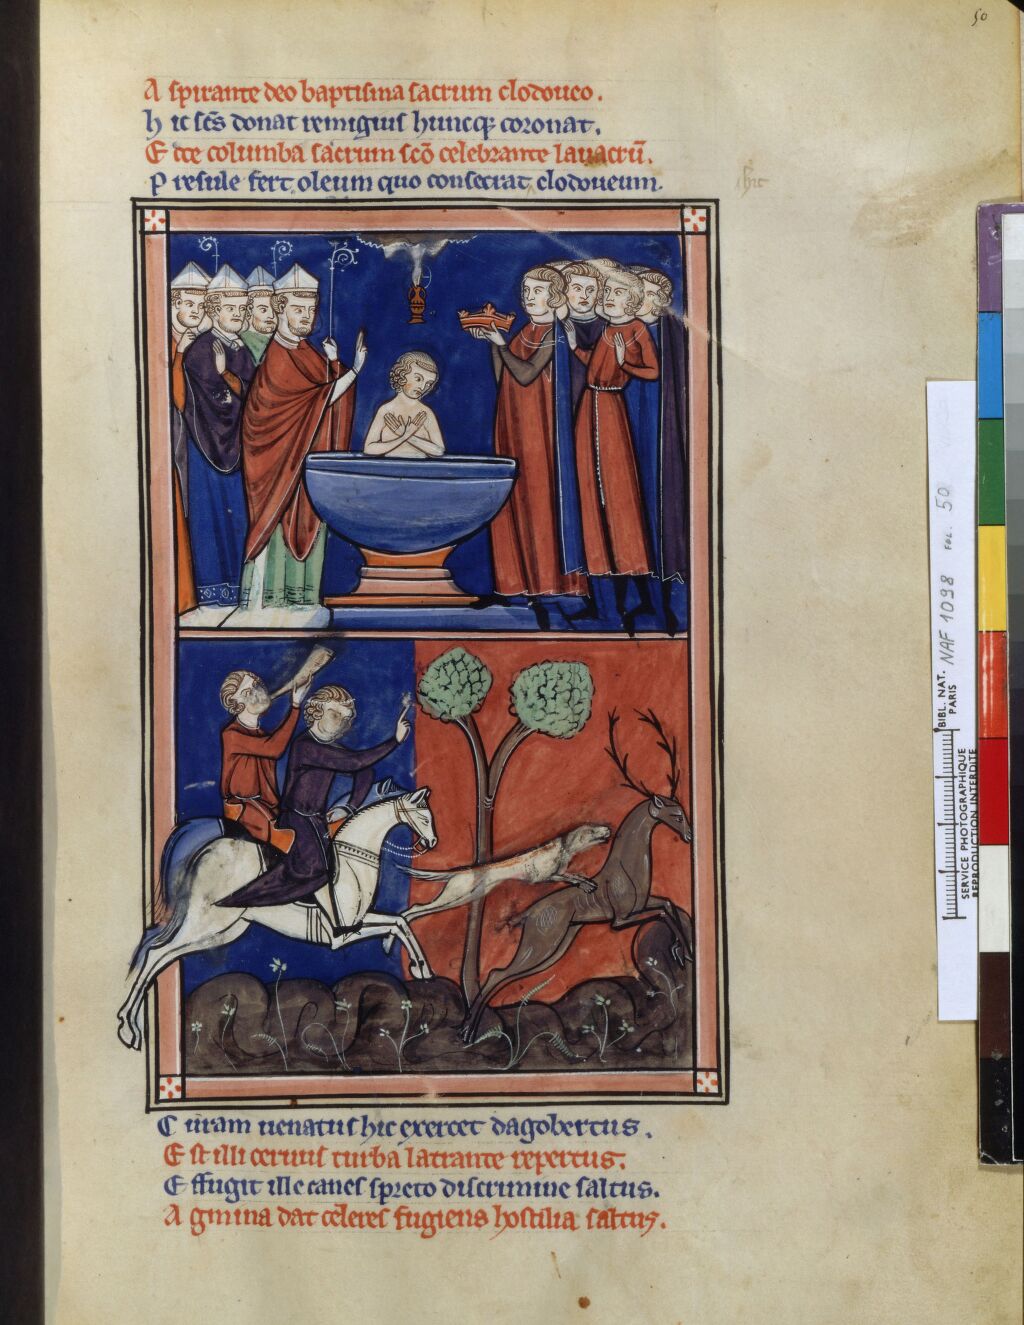 50
Aspirante deo baptisma sacrum clodoueo.
hic scs donat remigius huncq; coronat.
Ecce columba sacrum scō celebrante lauacrū.
Presule fert oleum quo consecrat clodoueum.
hic
Curam uenatus hic exercet dagobertus.
Est illi ceruus turba latrante repertus.
Effugit ille canes spreto discrimine saltus.
Agmina dat celeres fugiens hostilia saltus.
BIBL. NAT.
PARIS
NAF 1098 FOL. 50
SERVICE PHOTOGRAPHIQUE
REPRODUCTION INTERDITE